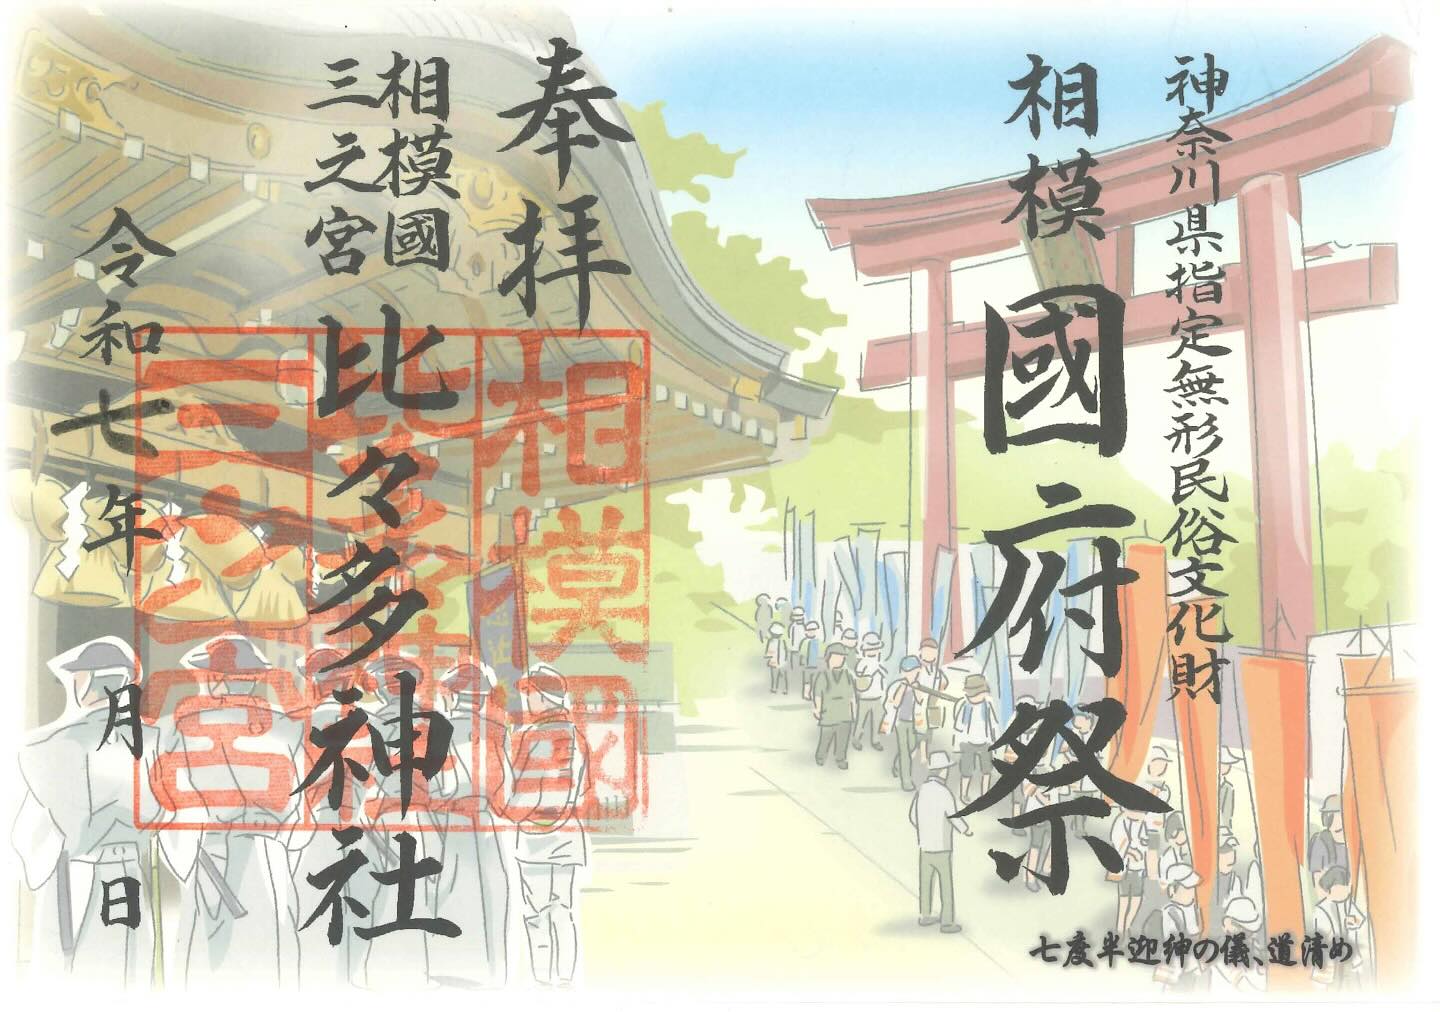 神奈川県指定無形民俗文化財
相模國府祭
七度半迎神の儀、道清め
奉拝
相模國
三之宮
比々多神社
令和七年 月 日
相模國
三之宮